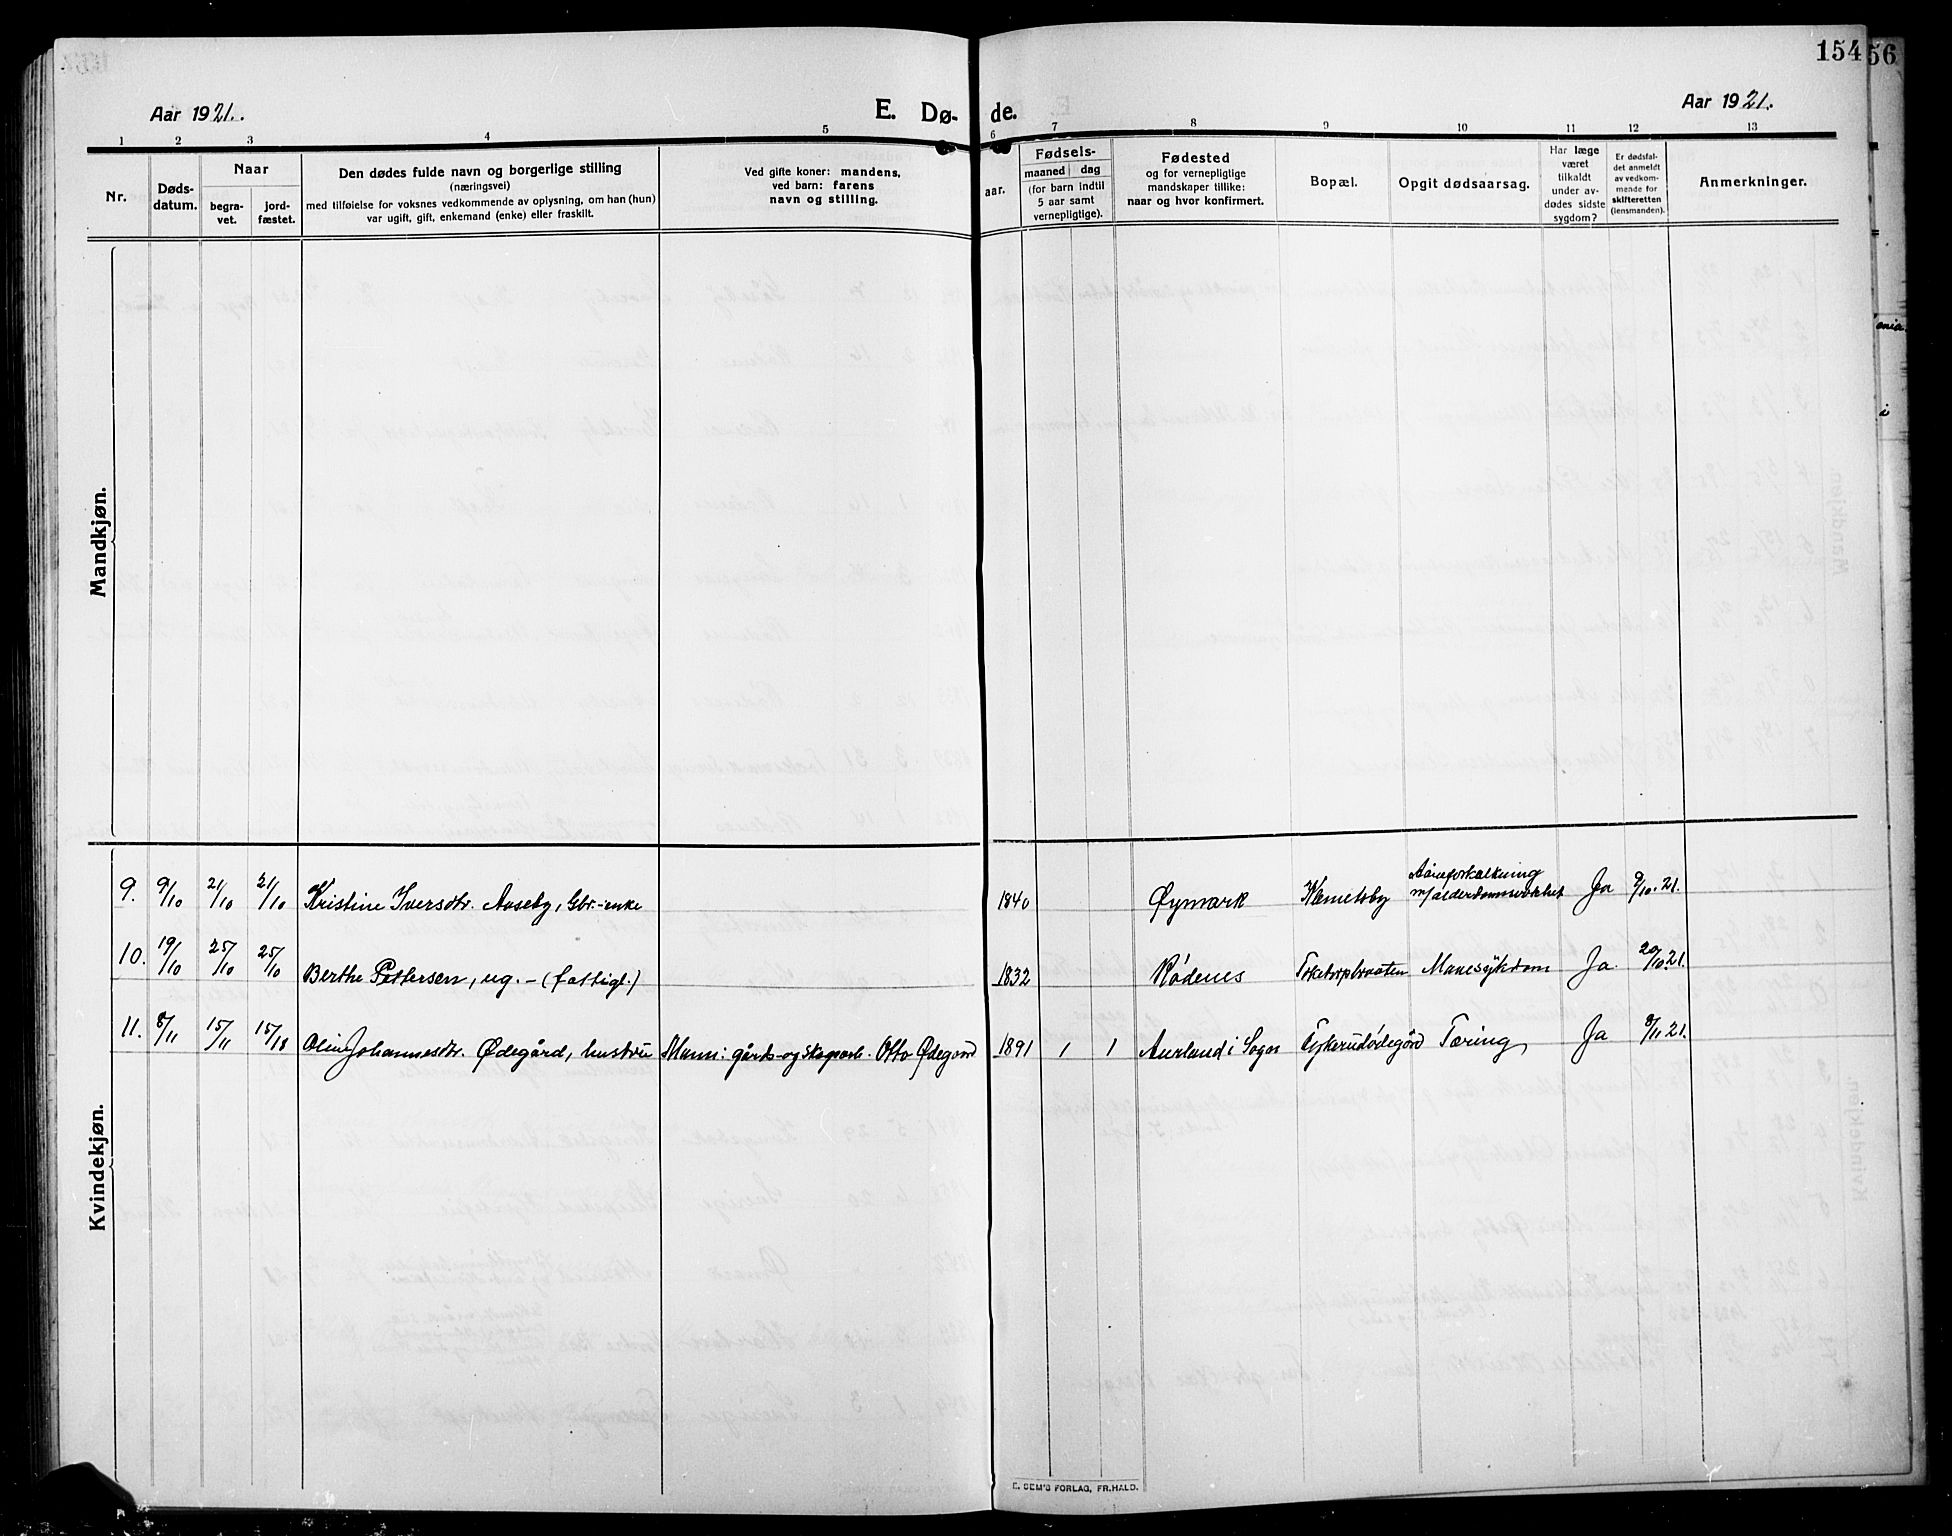 154
56
Aar 1921.
E. Dø-
de.
Aar 1921.
1 2 3 4 5 6 7 8 9 10 11 12 13
Nr.
Døds-
datum.
Naar
begra-
vet.
jord-
fæstet.
Den dødes fulde navn og borgerlige stilling
(næringsvei)
med tilføielse for voksnes vedkommende av oplysning, om han (hun)
var ugift, gift, enkemand (enke) eller fraskilt.
Ved gifte koner: mandens,
ved barn: farens
navn og stilling.
aar.
Fødsels-
maaned dag
(for barn indtil
5 aar samt
vernepligtige).
Fødested
og for vernepligtige
mandskaper tillike:
naar og hvor konfirmert.
Bopæl.
Opgit dødsaarsag.
Har læge
været
tilkaldt
under av-
dødes sidste
sygdom?
Er dødsfal-
det anmeldt
av vedkom-
mende for
skifteretten
(lensmanden).
Anmerkninger.
Mandkjøn.
Kvindekjøn.
9. 9/10 21/10 21/10 Kristine Iversdtr. Aaseby, Gbr.-enke 1840 Øymark Klemetsby Aareforkalkning
m/alderdomssvakhet Ja 9/10.21.
10. 19/10 25/10 25/10 Berthe Pettersen, ug. - (fattigl.) 1832 Rødenes Mavesykdom Ja 20/10.21.
11. 8/11 15/11 15/18 Oline Johannesdtr. Ødegård, hustru Mann: gårds- og skogsarb. Otto Ødegaard 1891 1 1 Aurland i Sogn Tæring Ja 8/11 21.
E. SEM'S FORLAG, FR.HALD.